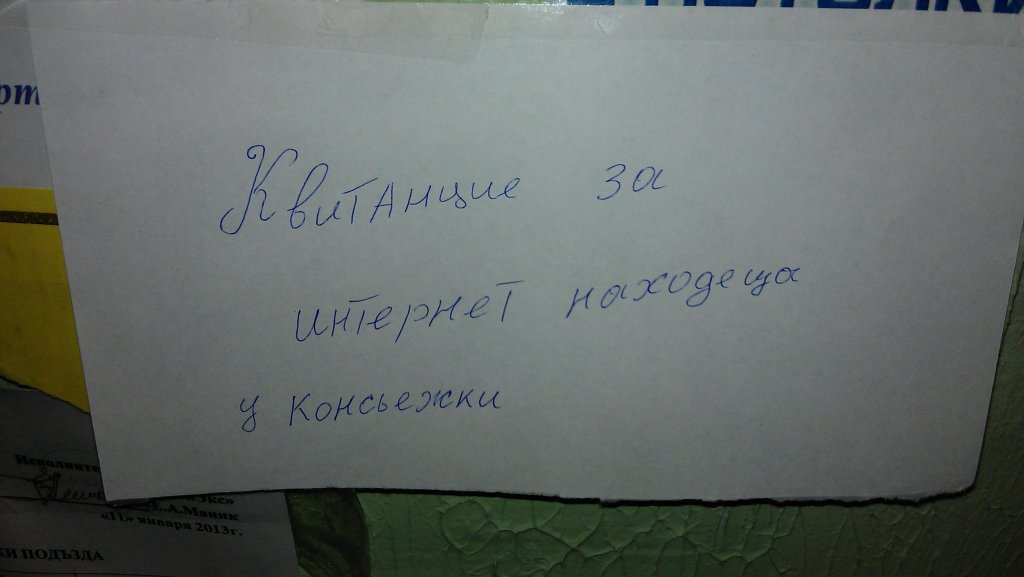 Квитанцие за
интернет находеща
у консьежки
Е.А.Маник
«11» января 2013г.
КИ ПОДЪЗДА